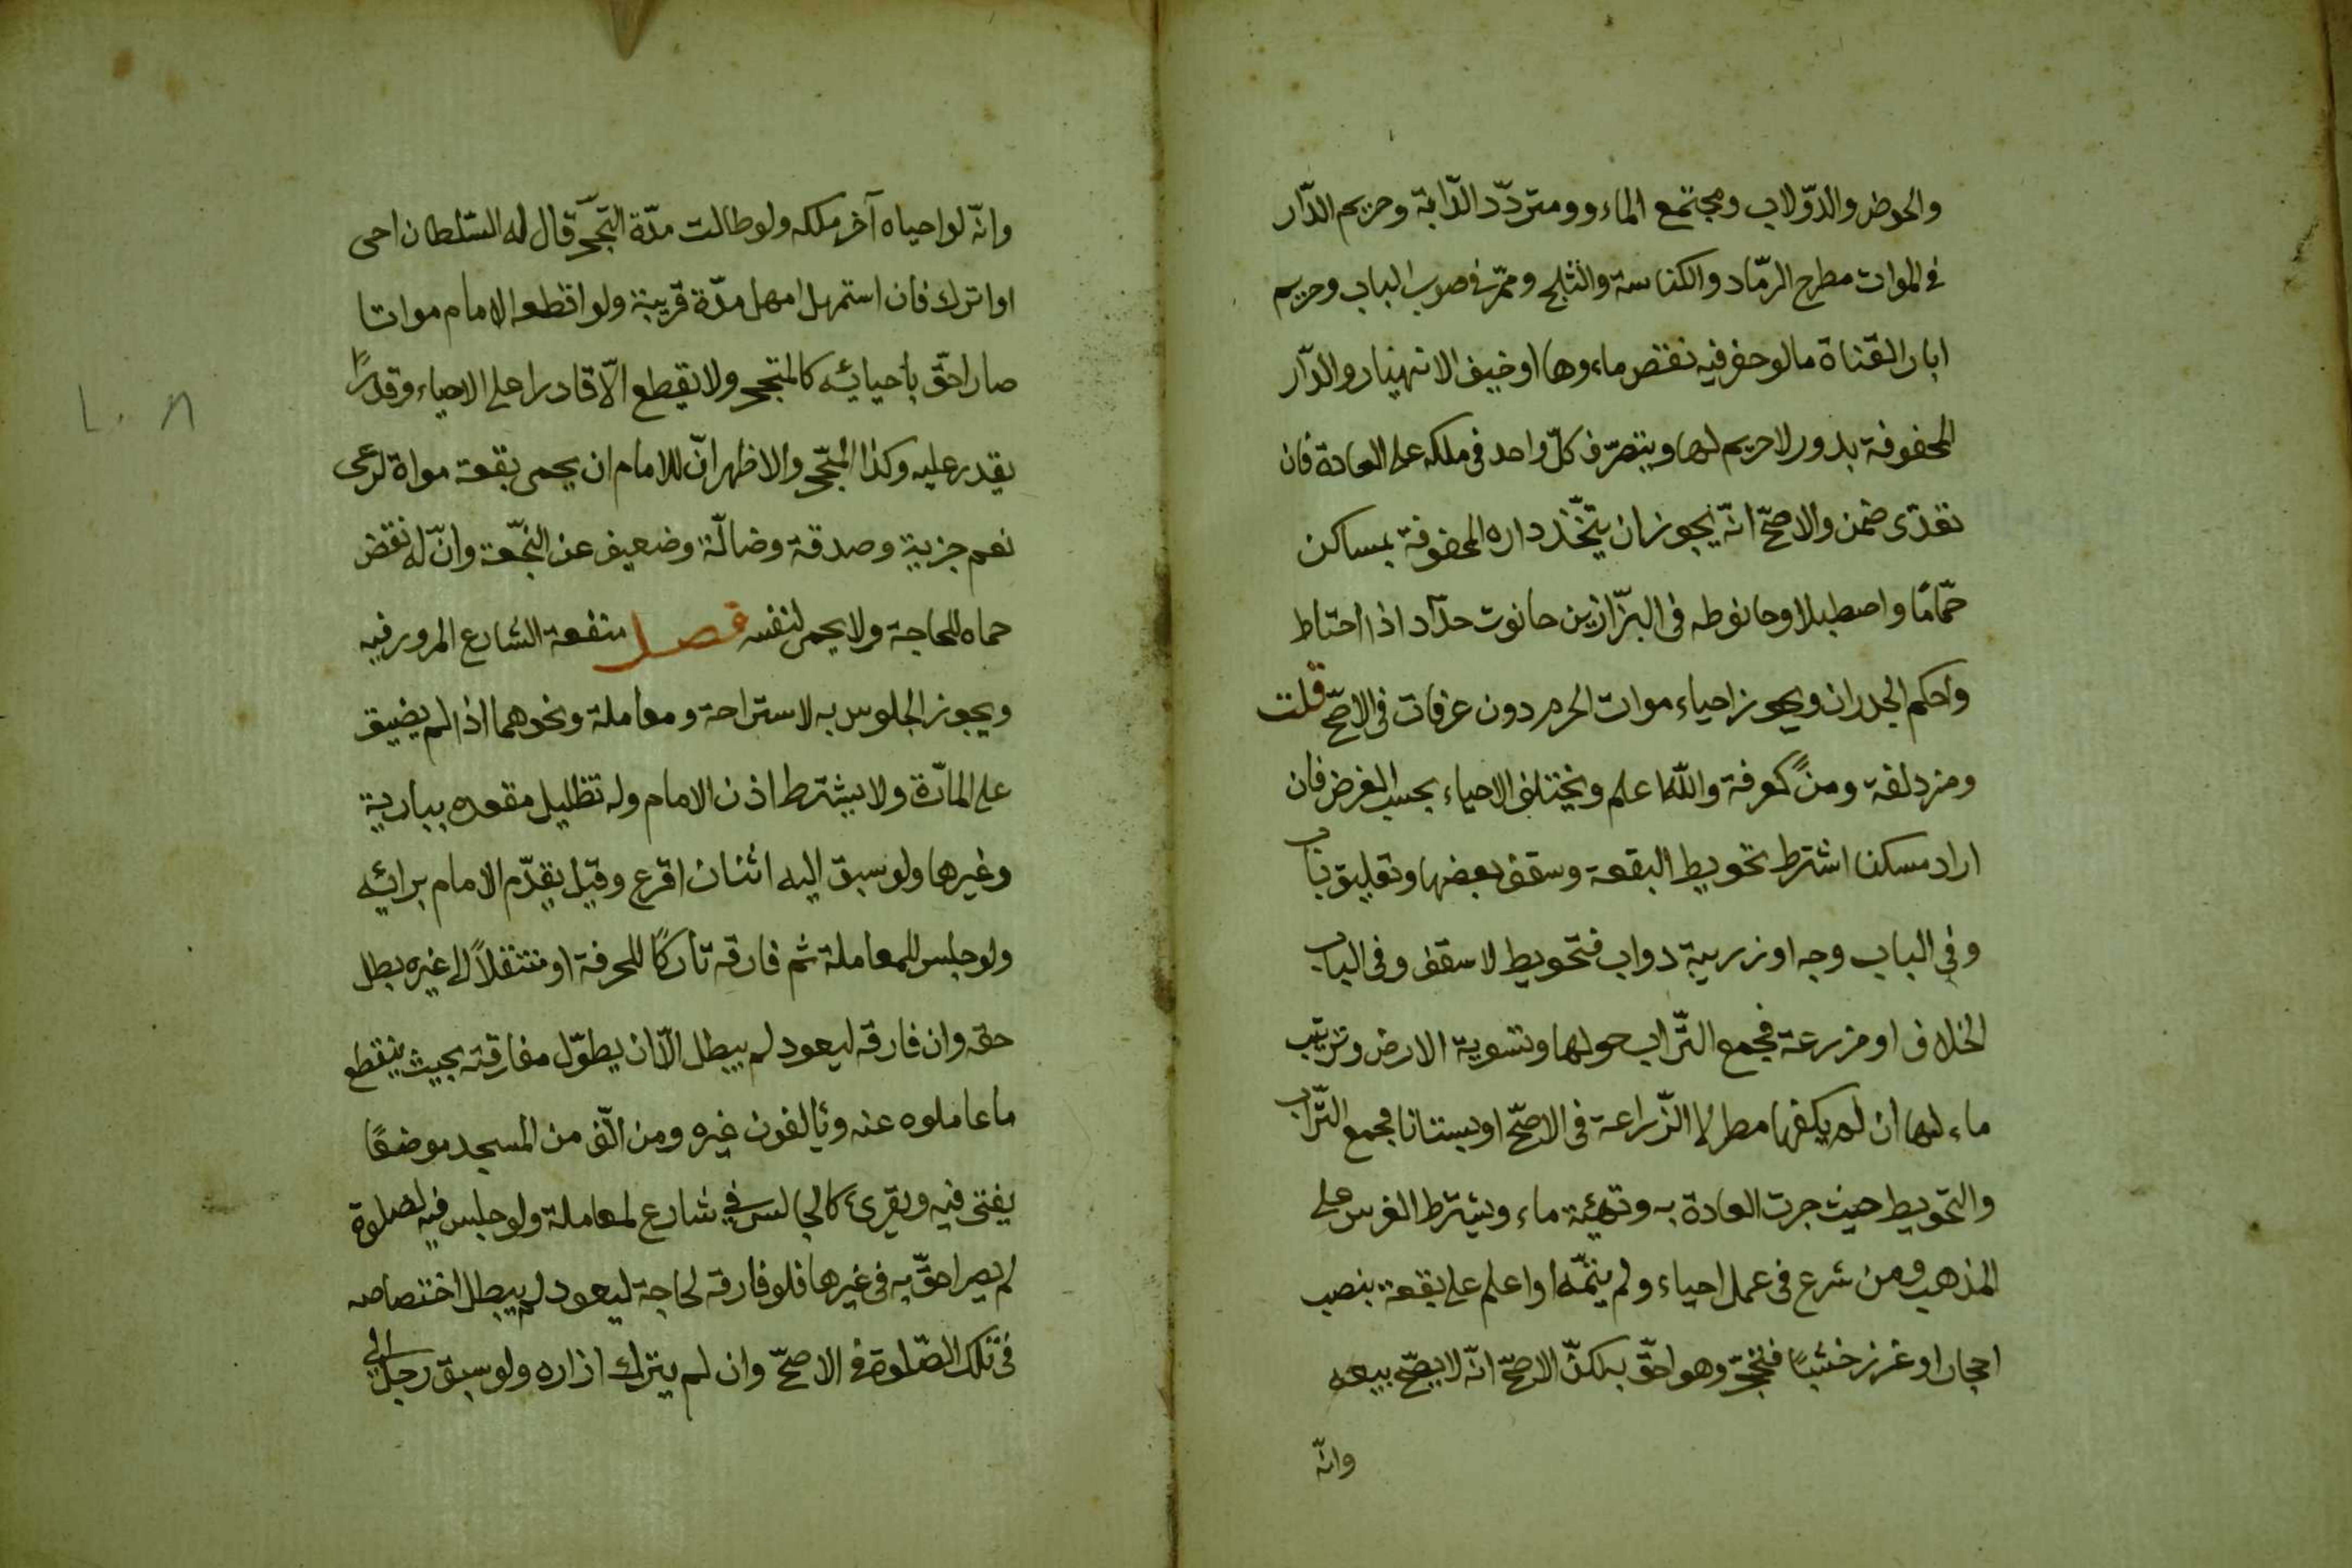 والحوض والدّولاب ومجتمع الماء وومتردّد الدّابة وحريم الدّار
في الموات مطرح الرّماد والكناسة والثلج وممّر في صوب الباب وحريم
ابار القناة مالو حفر فيه نقص ماءوها اوخيف الانهيار والدّار
المحفوفة بدور لا حريم لها ويتصرّف كلّ واحد في ملكه على العادة فان
تعدّى ضمن والاصحّ انّه يجوز ان يتّخذ داره المحفوفة بمساكن
حمّامًا واصطبلا وحانوطه في البزّازين حانوت حدّاد اذا احتاط
واحكم الجدران ويجوز احياء موات الحرم دون عرفات في الاصحّ قلت
ومزدلفة ومنًى كعرفة والله اعلم ويختلف الاحياء بحسب الغرض فان
اراد مسكنا اشترط تحويط البقعة وسقف بعضها وتعليق باب
وفي الباب وجه او زريبة دواب فتحويط لا سقف وفي الباب
الخلاف او مزرعة فجمع التّراب حولها وتسوية الارض وترتيب
ماء لها ان لم يكفها مطر لا الزّراعة في الاصحّ او بستانا فجمع التّراب
والتحويط حيث جرت العادة به وتهيئة ماء ويشترط الغرس على
المذهب ومن شرع في عمل احياء ولم يتمّه او اعلم على بقعة بنصب
احجار او غرز خشبًا فتحجّر وهو احقّ به لكنّ الاصحّ انّه لا يصحّ بيعه
وانّه
وانّه لو احياه آخر ملكه ولو طالت مدّة التّحجّر قال له السّلطان احى
او اترك فان استمهل امهل مدّة قريبة ولو اقطعه الامام مواتا
صار احقّ بأحيائه كالمتحجر ولا يقطع الّا قادرا على الاحياء وقدرًا
يقدر عليه وكذا المتّحجر والاظهر انّ للامام ان يحمى بقعة مواة لرعى
نعم جزية وصدقة وضالّة وضعيف عن النّجعة وانّ له نقض
حماه للحاجة ولا يحمى لنفسه فصل منفعة الشارع المرور فيه
ويجوز الجلوس به لاستراحة ومعاملة ونحوهما اذا لم يضيق
على المارّة ولا يشترط اذن الامام وله تظليل مقعده ببارية
وغيرها ولو سبق اليه اثنان اقرع وقيل يقدّم الامام برائه
ولو جلس للمعاملة ثم فارقه تاركًا للحرفة او منتقلاً الى غيره بطل
حقه وان فارقه ليعود لم يبطل الّا ان يطوّل مفارقته بحيث ينقطع
ما عاملوه عنه ويألفون غيره ومن الّف من المسجد موضعًا
يفتى فيه ويقرئ كالجالس في شارع لمعاملة ولو جلس فيه لصلوة
لم يصر احقّ به في غيرها فلو فارقه لحاجة ليعود لم يبطل اختصاصه
في تلك الصّلوة في الاصحّ وان لم يترك ازاره ولو سبق رجل الى